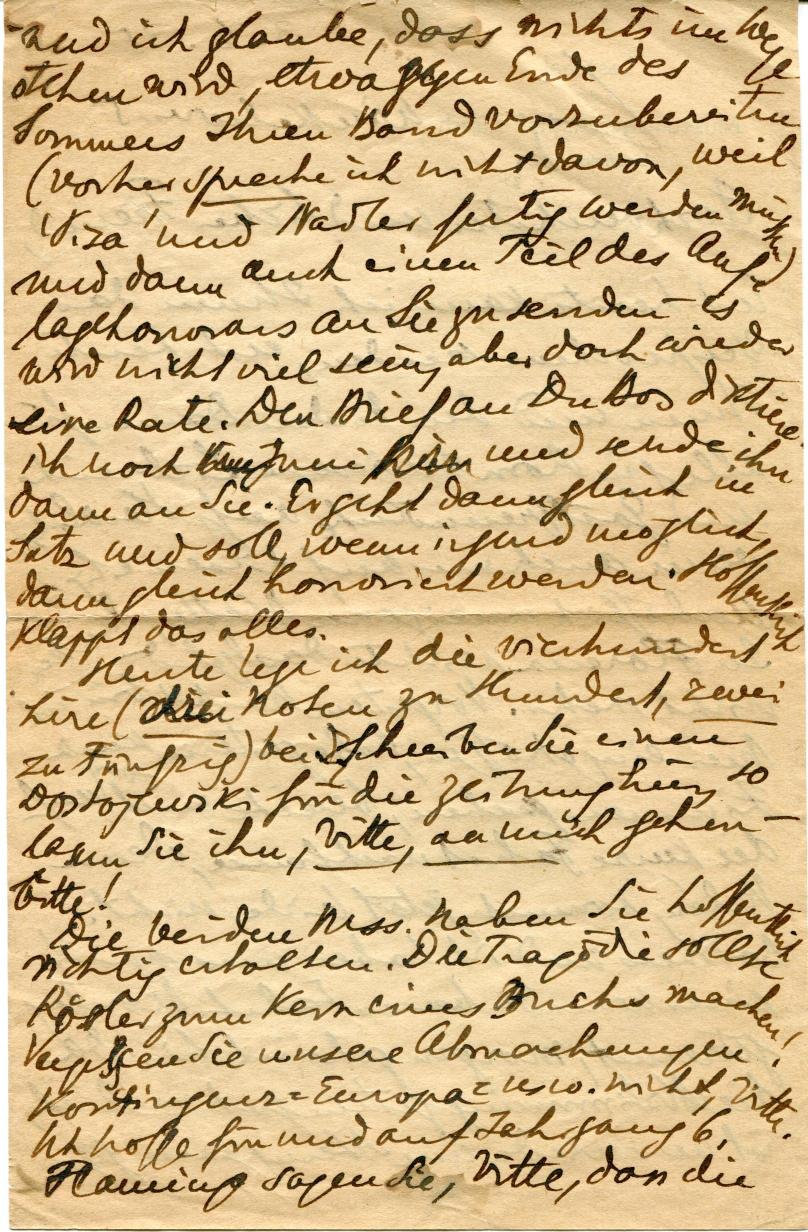 und ich glaube, dass nichts im Wege
stehen wird, etwa gegen Ende des
Sommers Ihren Band vorzubereiten
(vorher spreche ich nicht davon, weil
'Viza' und Nadler fertig werden müssen)
und dann auch einen Teil des Auf-
lagehonorars an Sie zu senden – es
wird nicht viel sein, aber doch wieder
eine Rate. Den Brief an Du Bos diktiere
ich noch und sende ihn
dann an Sie. Er geht dann gleich in
Satz und soll, wenn irgend möglich,
dann gleich honoriert werden. Hoffentlich
klappt das alles.
Heute lege ich die vierhundert
Lire (drei Noten zu Hundert, zwei
zu Fünfzig) bei. Schreiben Sie einen
Dostojewski für die Zeitung so
lassen Sie ihn, bitte, an mich gehen –
bitte!
Die beiden Mss. haben Sie hoffentlich
richtig erhalten. Die Tragödie sollte
Rösler zum Kern eines Buchs machen!
Vergessen Sie unsere Abmachungen
Kontinguez=Europa= usw. nicht, bitte.
Ich hoffe für und auf Jahrgang 6.
Flamingo sagen Sie, bitte, dass die